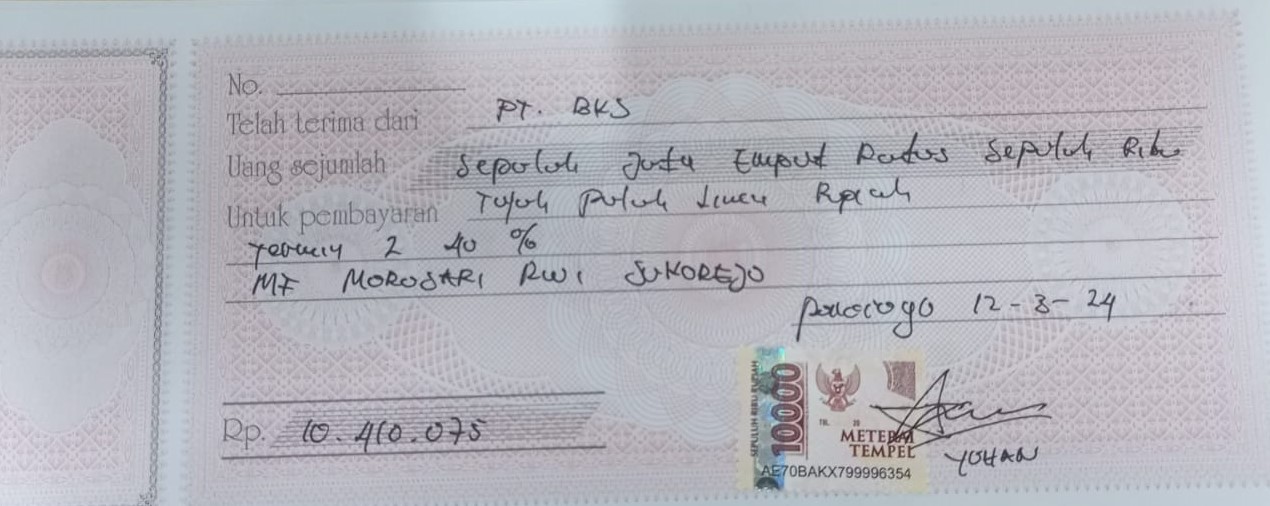 No.
Telah terima dari PT. BKS
Uang sejumlah Sepuluh Juta Empat Ratus Sepuluh Ribu
Untuk pembayaran Tujuh Puluh Lima Rupiah
Termin 2 40 %
MF MOROSARI RW1 SUKOREJO
Ponorogo 12-3-24
Rp. 10.410.075
SEPULUH RIBU RUPIAH
10000
TGL. 20
METERAI
TEMPEL
AE70BAKX799996354
YOHAN